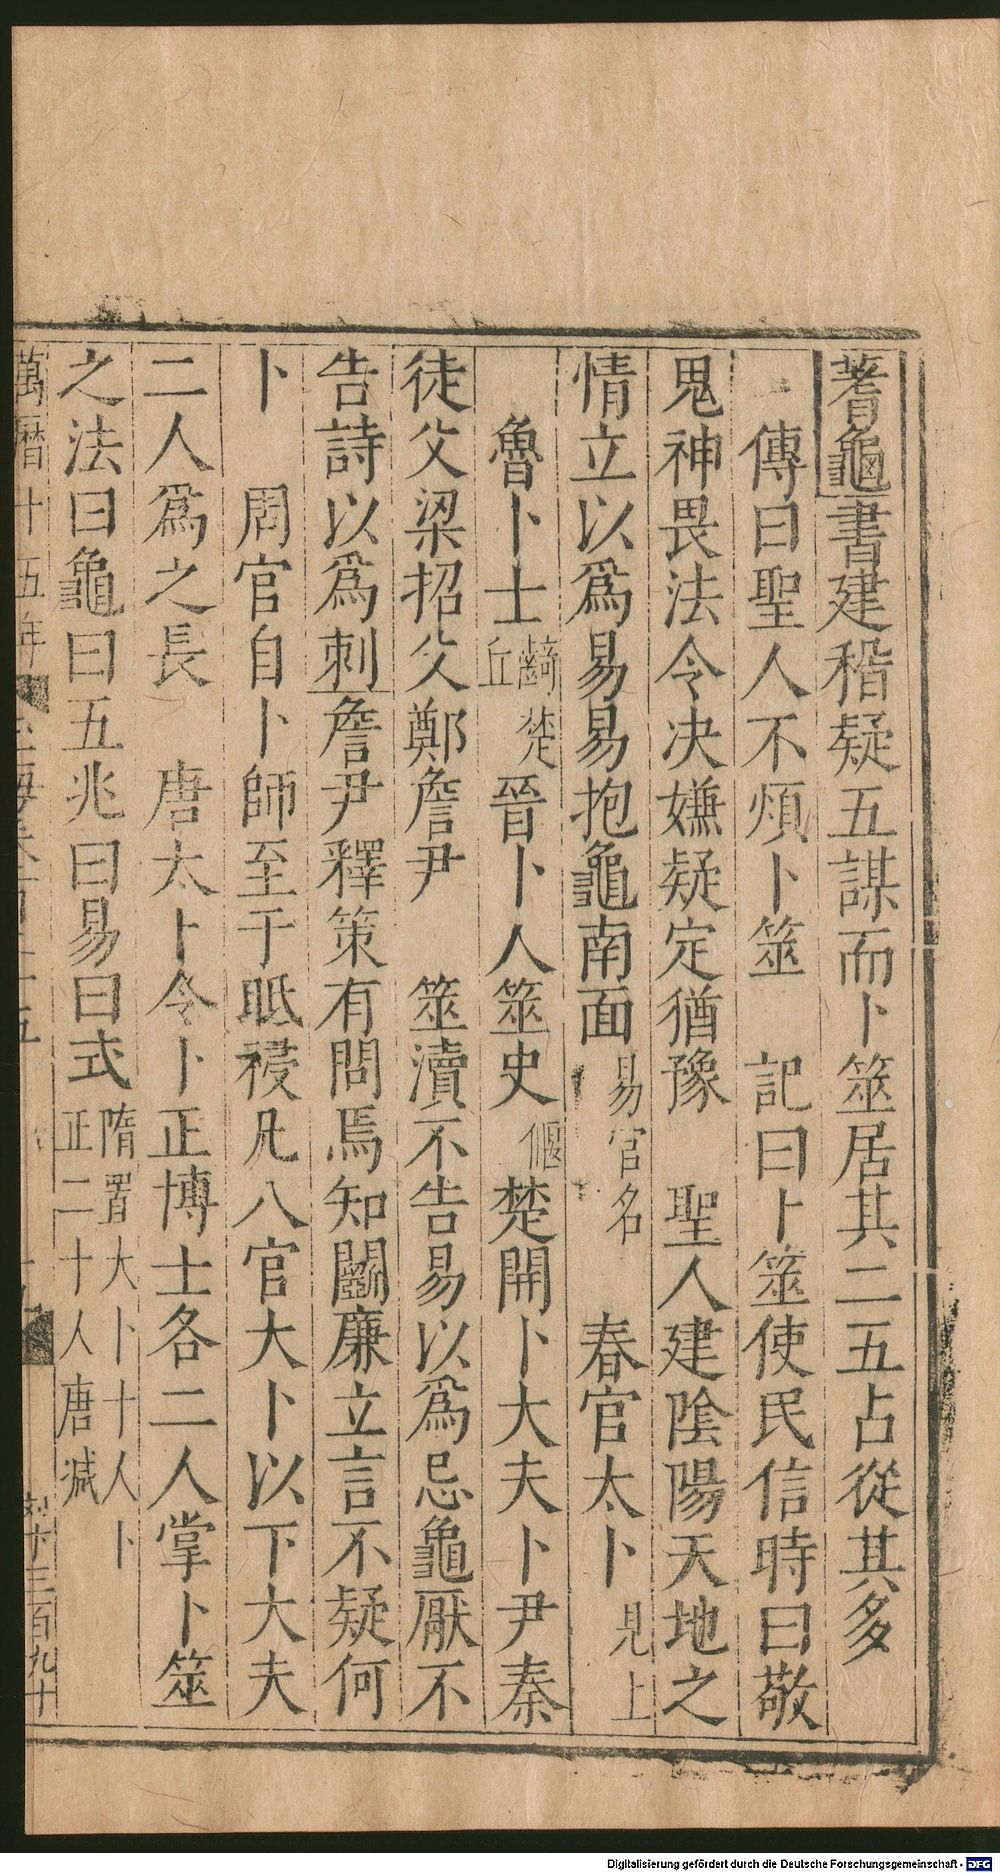 蓍龜書建稽疑五謀而卜筮居其二五占從其多
傳曰聖人不煩卜筮 記曰卜筮使民信時日敬
鬼神畏法令決嫌疑定猶豫 聖人建陰陽天地之
情立以爲易易抱龜南面易官名 春官太卜見上
魯卜士齮丘楚晉卜人筮史偃楚開卜大夫卜尹秦
徒父梁招父鄭詹尹 筮瀆不告易以爲忌龜厭不
告詩以爲刺詹尹釋策有問焉知闗廉立言不疑何
卜 周官自卜師至于眡祲凡八官大卜以下大夫
二人爲之長 唐太卜令卜正博士各二人掌卜筮
之法曰龜曰五兆曰易曰式隋置大卜十人卜正二十人唐減
萬曆十五年 玉海卷 五
三百九十
Digitalisierung gefördert durch die Deutsche Forschungsgemeinschaft - DFG